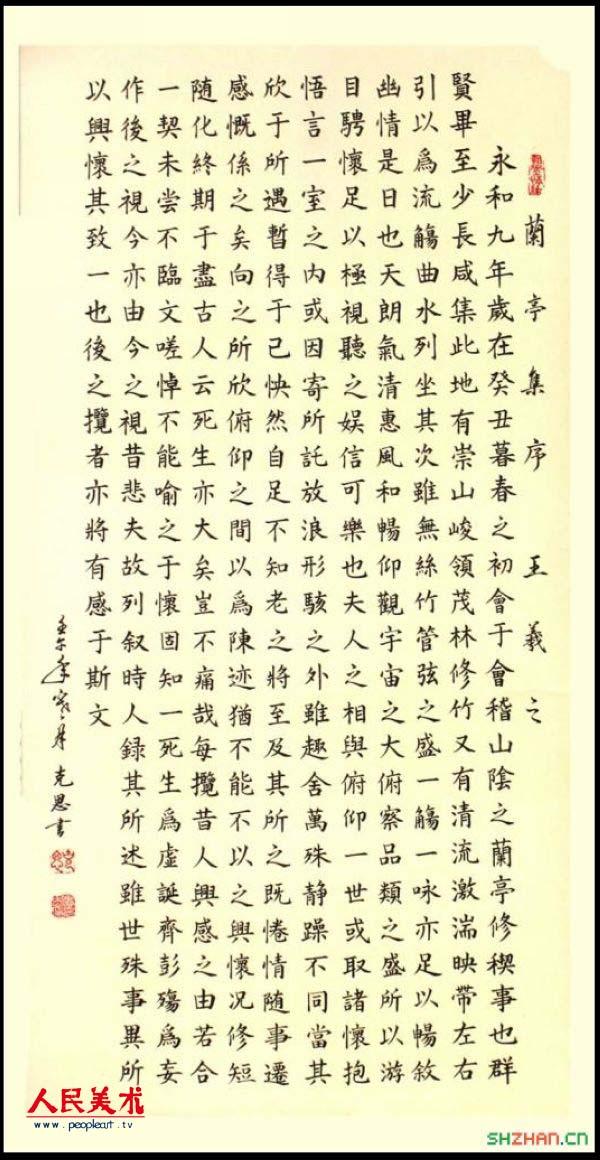 蘭亭集序 王羲之
永和九年歲在癸丑暮春之初會于會稽山陰之蘭亭修稧事也群
賢畢至少長咸集此地有崇山峻領茂林修竹又有清流激湍映帶左右
引以爲流觴曲水列坐其次雖無絲竹管弦之盛一觴一咏亦足以暢敘
幽情是日也天朗氣清惠風和暢仰觀宇宙之大俯察品類之盛所以游
目騁懷足以極視聽之娱信可樂也夫人之相與俯仰一世或取諸懷抱
悟言一室之内或因寄所託放浪形骸之外雖趣舍萬殊静躁不同當其
欣于所遇暫得于己怏然自足不知老之將至及其所之既惓情隨事遷
感慨係之矣向之所欣俯仰之間以爲陳迹猶不能不以之興懷况修短
随化終期于盡古人云死生亦大矣豈不痛哉每攬昔人興感之由若合
一契未尝不臨文嗟悼不能喻之于懷固知一死生爲虛誕齊彭殤爲妄
作後之視今亦由今之視昔悲夫故列叙時人録其所述雖世殊事異所
以興懷其致一也後之攬者亦將有感于斯文
年 月 克思書
人民美术
www.peopleart.tv
SHZHAN.CN